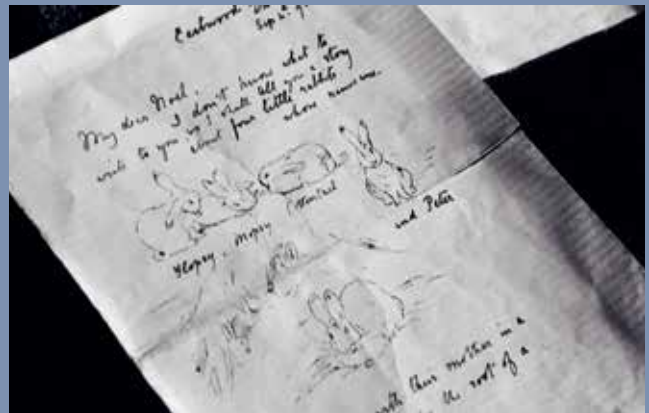 Eastwood
Sep 4. 93
My dear Noel,
I don't know what to
write to you, so I shall tell you a story
about four little rabbits
whose names were
Flopsy, Mopsy Cottontail
and Peter
with their mother in a
the root of a